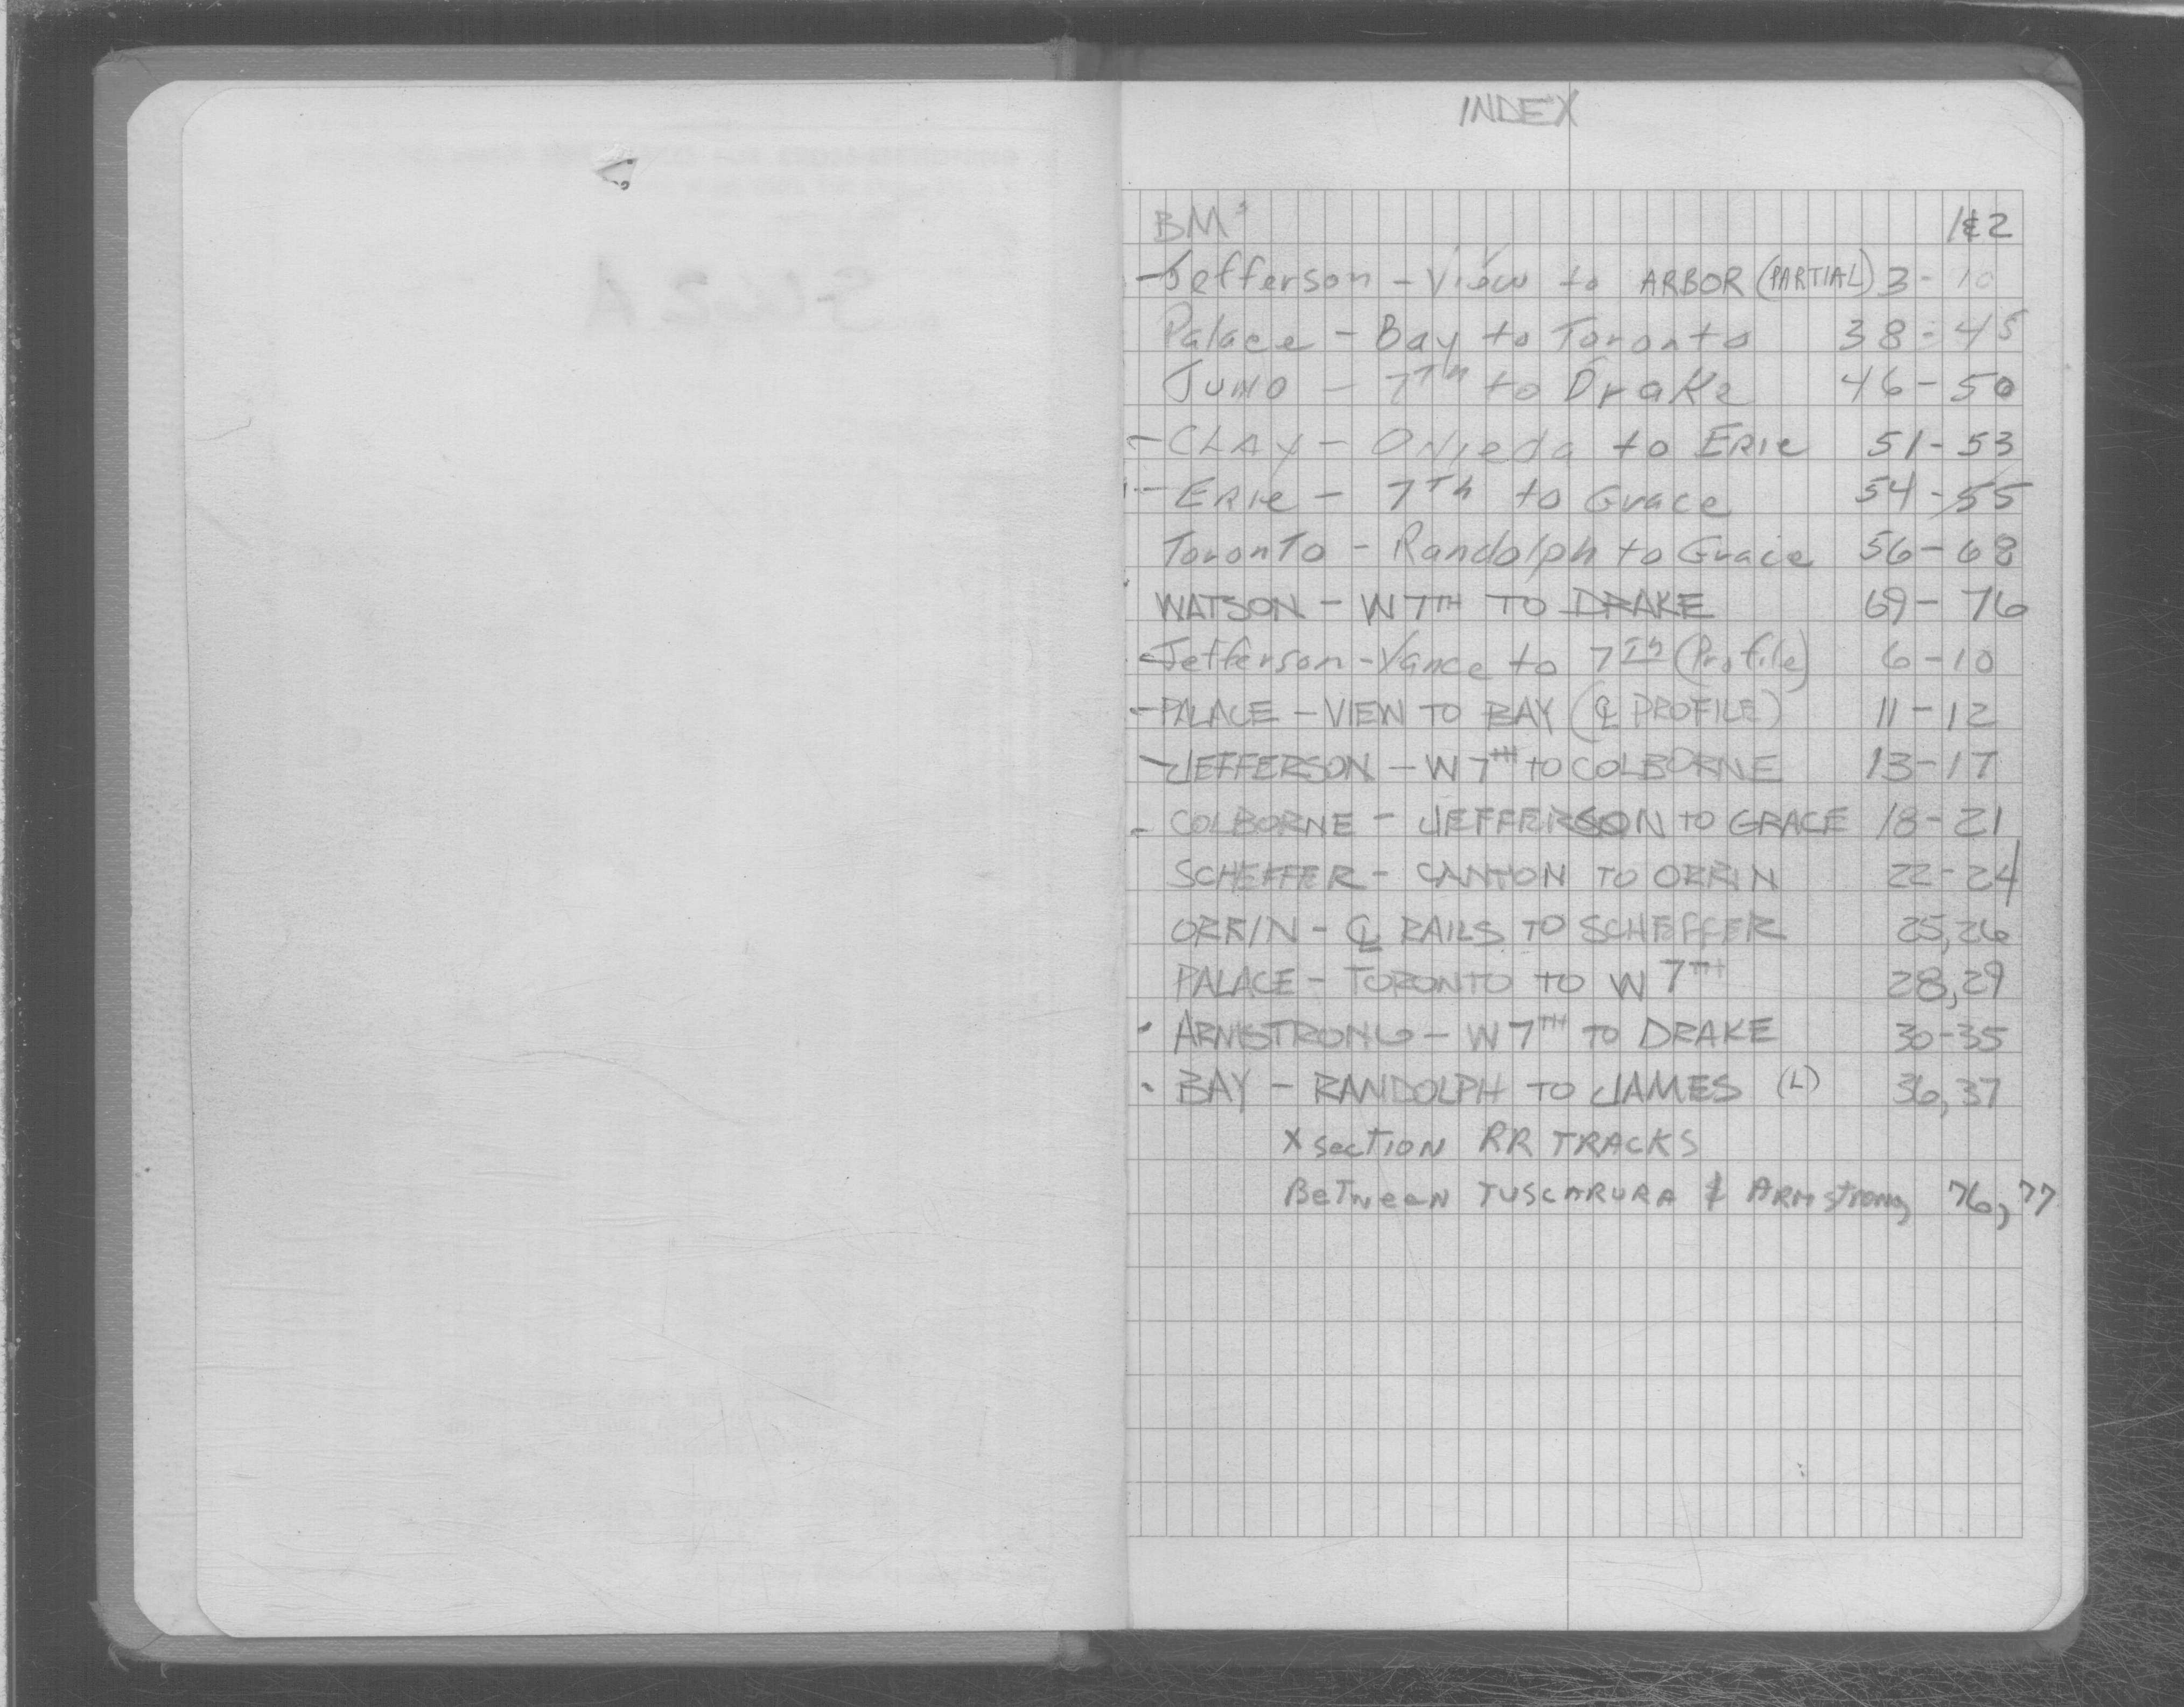 INDEX
BMs 1&2
-Jefferson - View to ARBOR (PARTIAL) 3-10
Palace - Bay to Toronto 38-45
Juno - 7Th to Drake 46-50
-CLAY - ONieda to ERIe 51-53
-ERIe - 7Th to Grace 54-55
ToronTo - Randolph to Gracie 56-68
WATSON - W 7TH TO DRAKE 69-76
-Jefferson - Vance to 7Th (Profile) 6-10
-PALACE - VIEW TO BAY (℄ PROFILE) 11-12
-JEFFERSON - W 7TH TO COLBORNE 13-17
- COLBORNE - JEFFERSON TO GRACE 18-21
SCHEFFER - CANTON TO ORRIN 22-24
ORRIN - ℄ RAILS TO SCHEFFER 25,26
PALACE - TORONTO TO W 7TH 28,29
- ARMSTRONG - W 7TH TO DRAKE 30-35
- BAY - RANDOLPH TO JAMES (L) 36,37
X secTION RR TRACKS
BeTween TUSCARURA & ARMstrong 76,77